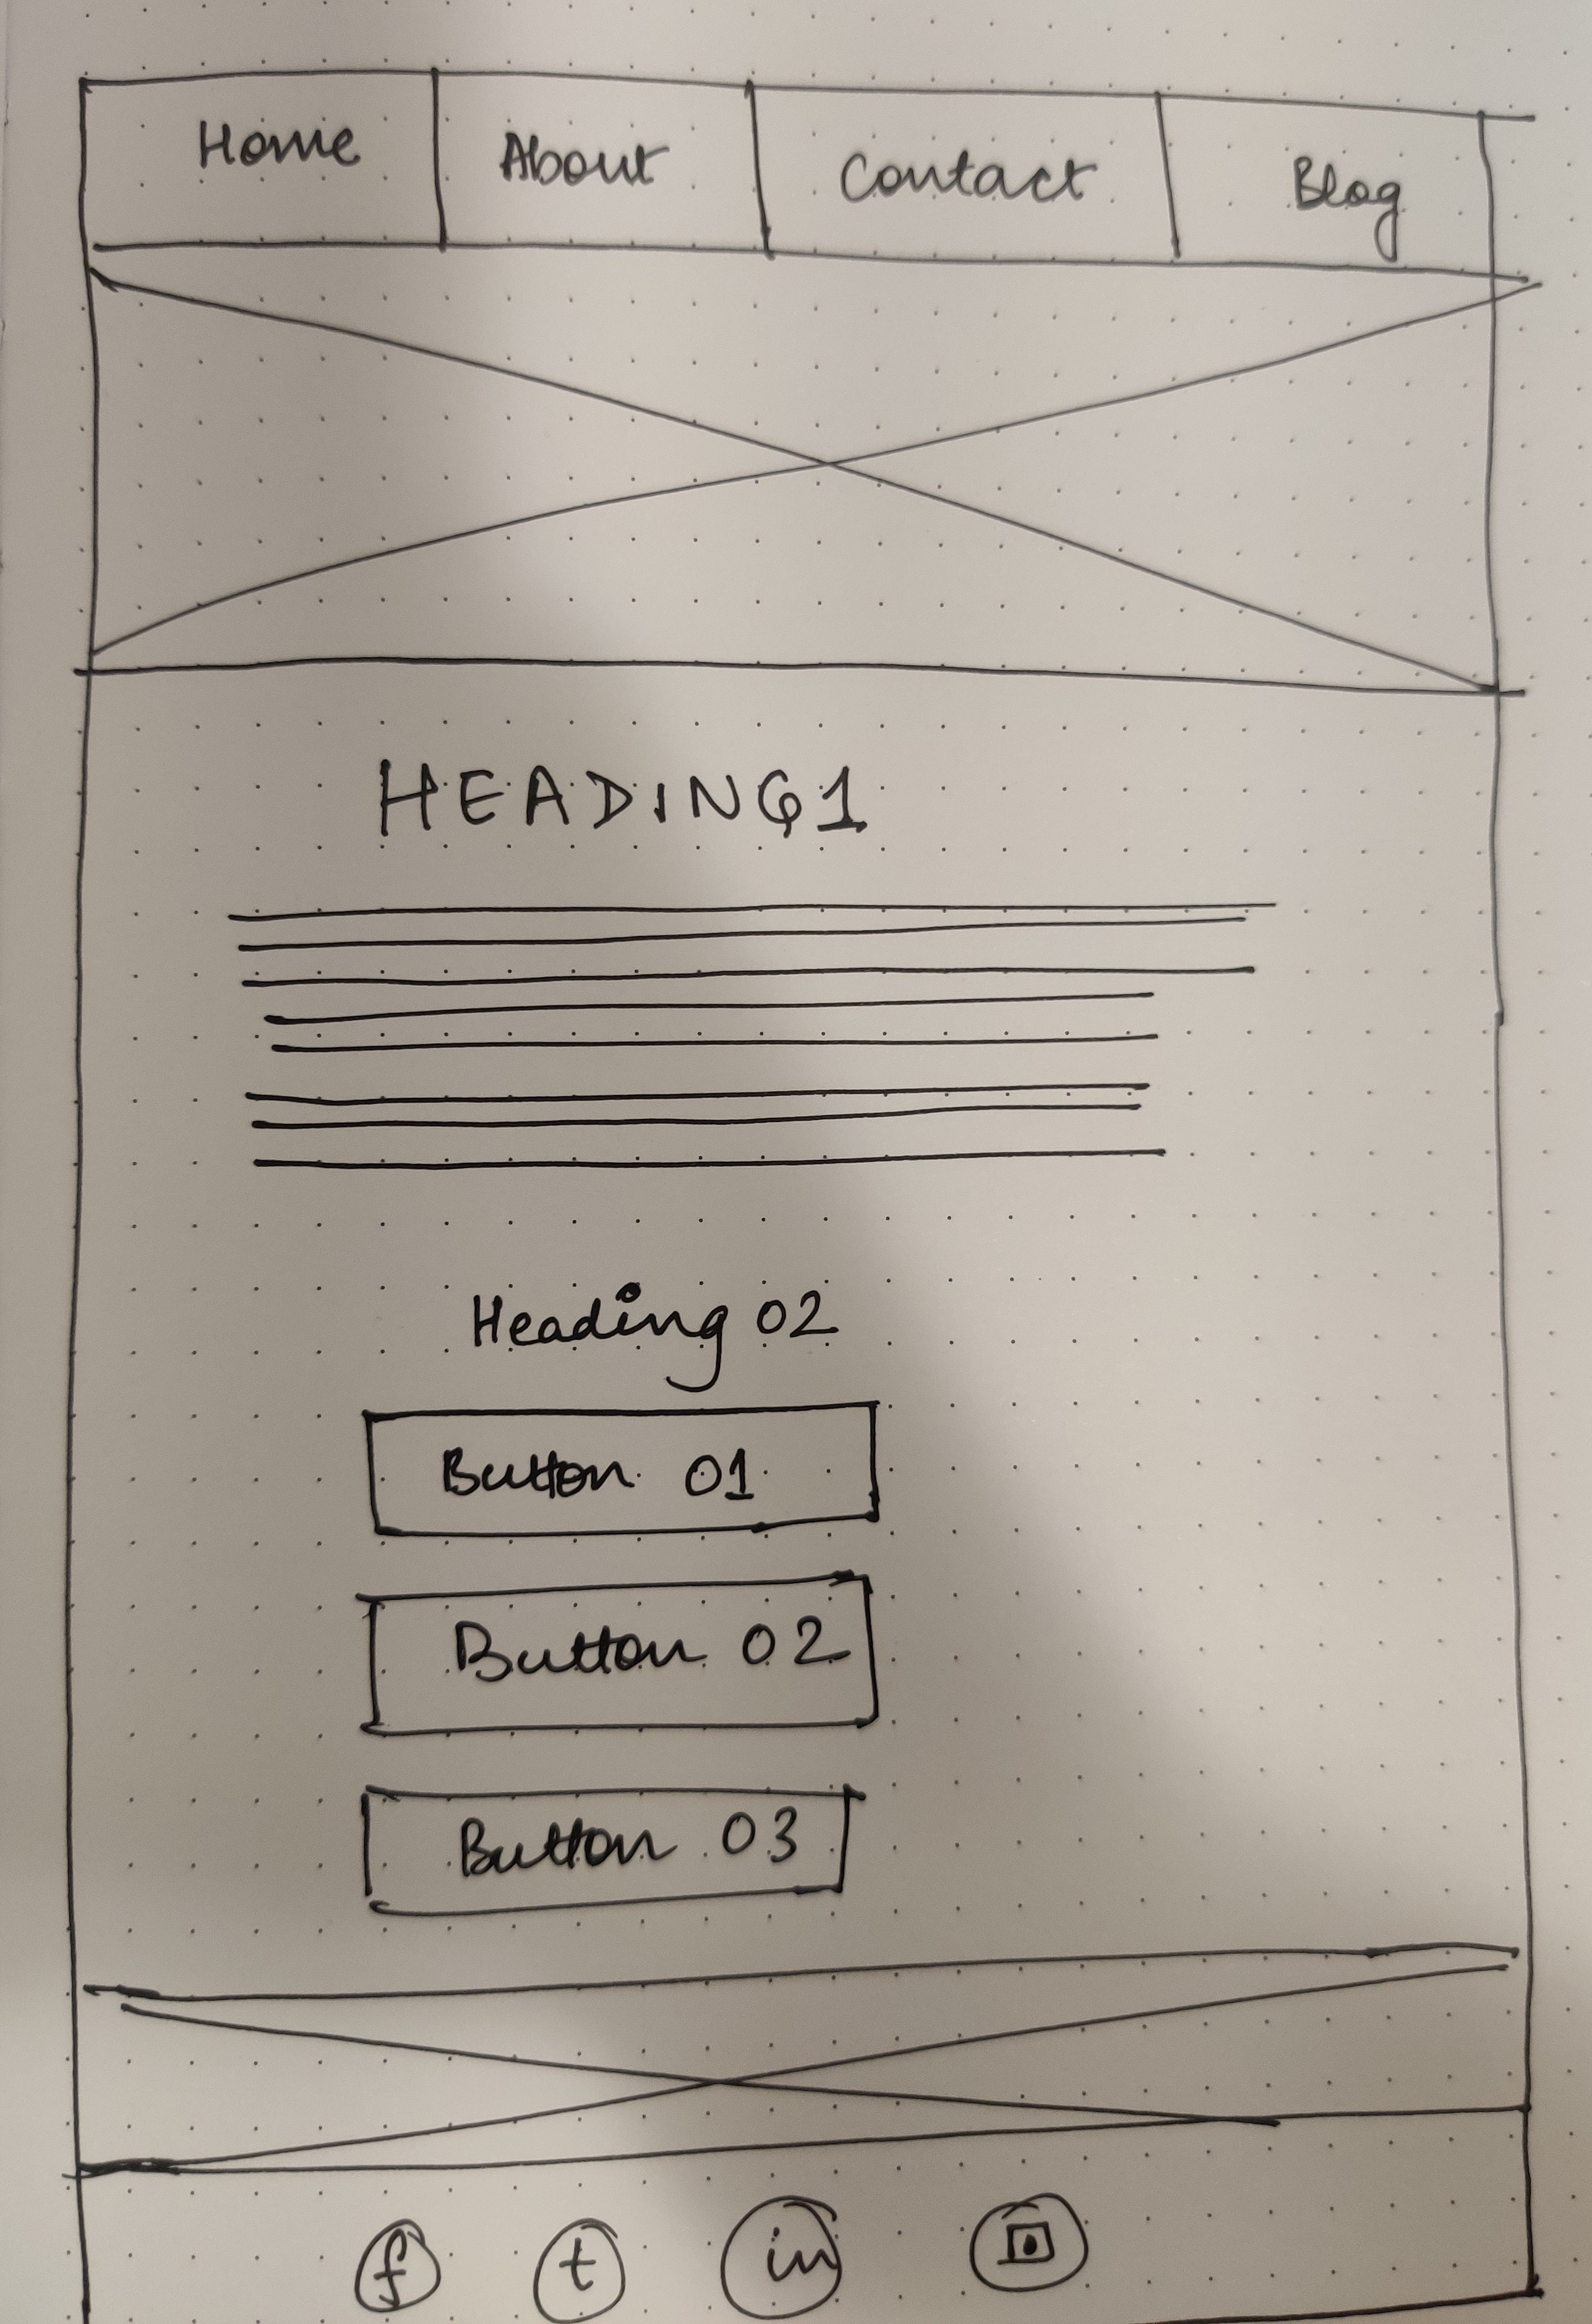 Home About Contact Blog
HEADING1
Heading 02
Button 01
Button 02
Button 03
f t in